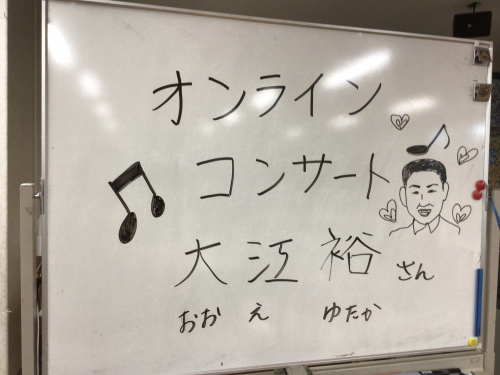 オンライン
コンサート
大江裕さん
おおえ ゆたか